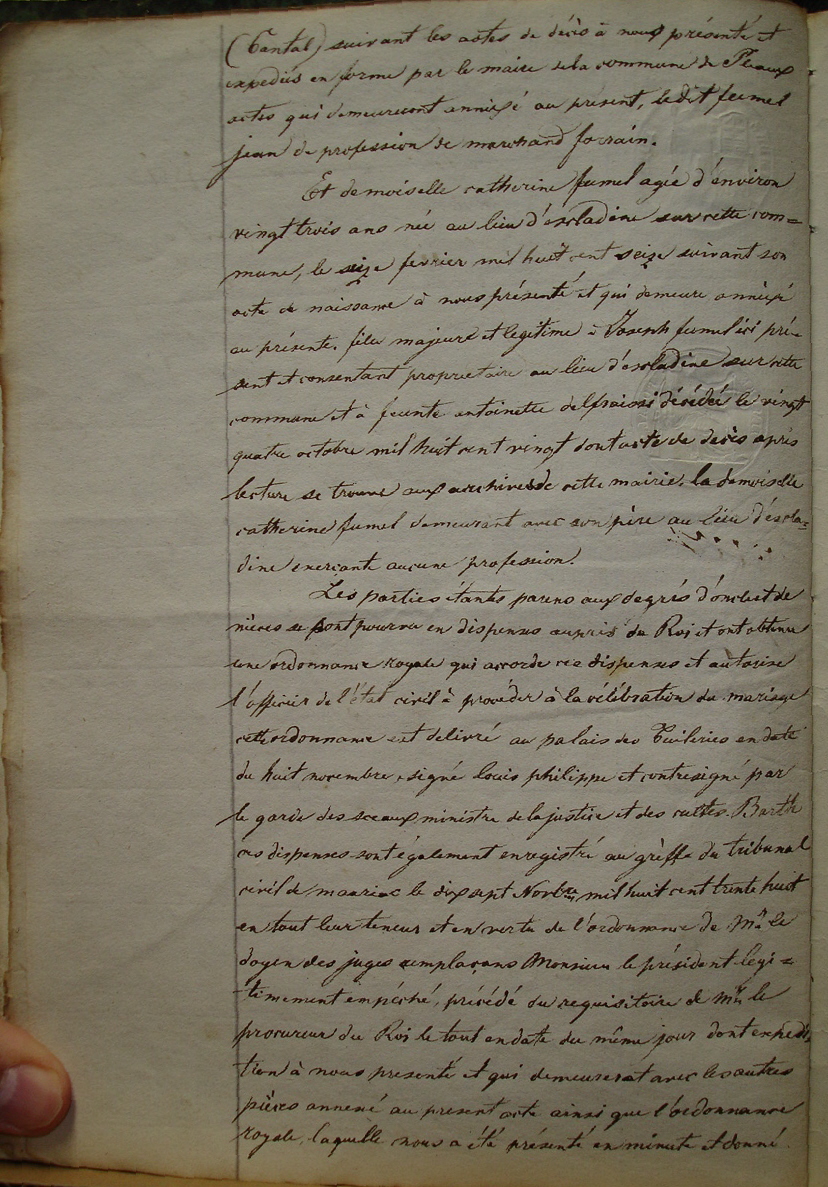 (Cantal) suivant les actes de décès à nous présenté et
expediés en forme par le maire de la commune de Pleaux
actes qui demeureront annexé au présent, ledit fumel
jean de profession de marchand forrain.
Et demoiselle catherine fumel agée d'environ
vingt trois ans née au lieu d'éscladine sur cette com=
mune, le seize fevrier mil huit cent seize suivant son
acte de naissance à nous présenté et qui demeure annéxé
au présente. fille majeure et legitime à Joseph fumel ici pré-
sent et consentant proprietaire au lieu d'escladine sur cette
commune et à feunte antoinette delfraissi décédée le vingt
quatre octobre mil huit cent vingt dont acte de decès après
lecture se trouve aux archives de cette mairie, la demoiselle
catherine fumel demeurant avec son père au lieu d'éscla=
dine exerçante aucune profession.
Les parties étantes parens aux degrés d'oncle et de
nièces se sont pourvu en dispenses auprès du Roi et ont obtenu
une ordonnance royale qui accorde ces dispenses et autorise
l'officier de l'état civil à procéder à la célébration du mariage
cette ordonnance est delivré au palais des Tuileries en date
du huit novembre, signé louis philippe et contresigné par
le garde des sceaux ministre de la justice et des cultes. Barth
ces dispenses sont également enregistré au grèffe du tribunal
civil de mauriac le dix sept Novbre mil huit cent trente huit
en tout leur teneur et en vertu de l'ordonnance de Mr le
doyen des juges remplaçans Monsieur le président légi=
timement empéché, précédé du requisitoire de Mr le
procureur du Roi le tout en date du même jour dont expédi
tion à nous presenté et qui demeurerat avec les autres
pièces annexé au present acte ainsi que l'ordonnance
royale, laquelle nous a été présenté en minute et donné